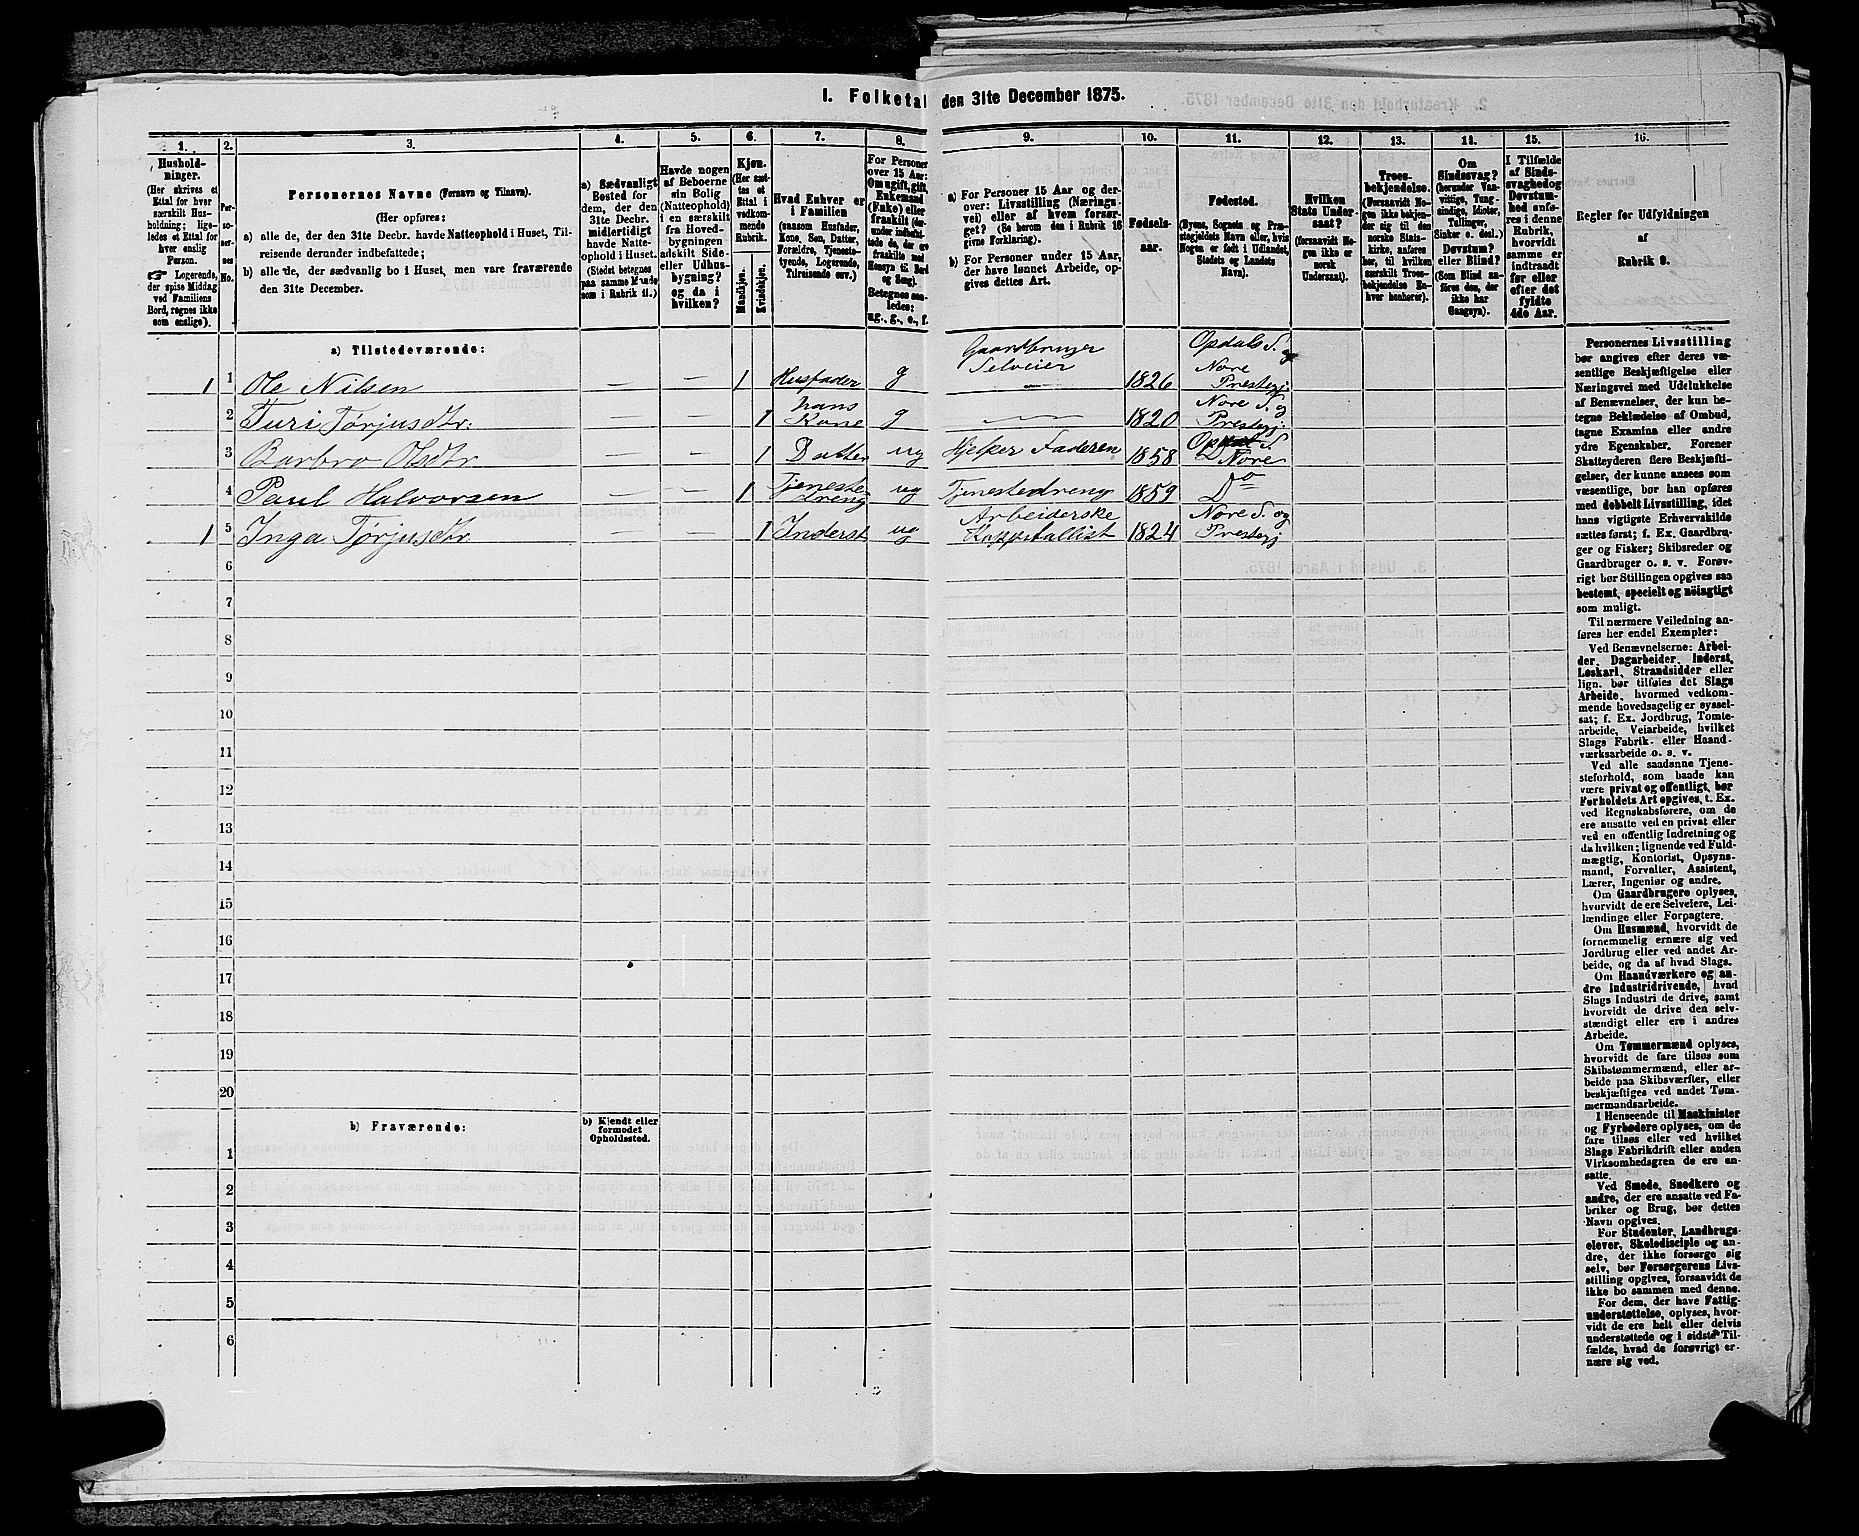 I. Folketal den 31te December 1875.
1.
Hushold-
ninger.
(Her skrives et
Ettal for hver
særskilt Hus-
holdning; lige-
ledes et Ettal for
hver enslig
Person.
Logerende,
der spise Middag
ved Familiens
Bord, regnes ikke
som enslige).
2.
Per-
so-
ner-
nes
No.
3.
Personernes Navne (Fornavn og Tilnavn).
(Her opføres:
a) alle de, der den 31te Decbr. havde Natteophold i Huset, Til-
reisende derunder indbefattede;
b) alle de, der sædvanlig bo i Huset, men vare fraværende
den 31te December.
4.
a) Sædvanligt
Bosted for
dem, der den
31te Decbr.
midlertidigt
havde Natte-
ophold i Huset.
(Stedet betegnes
paa samme Maade
som i Rubrik 11.)
5.
Havde nogen
af Beboerne
sin Bolig
(Natteophold)
i en særskilt
fra Hoved-
bygningen
adskilt Side-
eller Udhus-
bygning?
og da i
hvilken?
6.
Kjøn.
(Her sæt-
tes et
Ettal i
vedkom-
mende
Rubrik.
Mandkjøn.
Kvindekjøn.
7.
Hvad Enhver er
i Familien
(saasom Husfader,
Kone, Søn, Datter,
Forældre, Tjeneste-
tyende, Logerende,
Tilreisende osv.)
8.
For Personer
over 15 Aar:
Om ugift, gift,
Enkemand
(Enke) eller
fraskilt
Betegnes saa-
ledes:
ug., g., e., f.
9.
a) For Personer 15 Aar og der-
over: Livsstilling (Nærings-
vei) eller af hvem forsør-
get? (Se herom den i Rubrik 16
givne Forklaring).
b) For Personer under 15 Aar,
der have lønnet Arbeide, op-
gives dettes Art.
10.
Fødsels-
aar.
11.
Fødested.
(Byens, Sognets og Præ-
stegjeldets Navn eller, hvis
Nogen er født i Udlandet,
Stedets og Landets
Navn).
12.
Hvilken
Stats Under-
saat?
(forsaavidt No-
gen ikke er
norsk
Undersaat).
13.
Troes-
bekjendelse.
(Forsaavidt No-
gen ikke bekjen-
der sig til den
norske Stats-
kirke, anføres
her, til hvilken
særskilt Troes-
bekjendelse En-
hver henhører).
14.
Om
Sindssvag?
(herunder Van-
vittige, Tung-
sindige, Idioter,
Tullinger,
Sinker o. desl.)
Døvstum?
eller Blind?
(Som Blind an-
føres den, der
ikke har
Gangsyn).
15.
I Tilfælde
af Sinds-
svaghed og
Døvstum-
hed anfø-
res i denne
Rubrik,
hvorvidt
samme er
indtraadt
før eller
efter det
fyldte
4de Aar.
16.
Regler for Udfyldningen
af
Rubrik 9.
a) Tilstedeværende:
1 1 Ole Nilsen — — 1 Husfader g Gaardbruger Selveier 1826 Opdals S. og Nore Prestegj.
2 Turi Tørjusdtr. — — 1 hans Kone g — 1820 Nore S. og Prestegj.
3 Barbro Olsdtr — — 1 Datter ug Hjelper Faderen 1858 Opdal S. Nore
4 Paul Halvorsen — — 1 Tjeneste dreng ug Tjenestedreng 1859 Do
1 5 Inga Tørjusdtr. — — 1 Inderst ug Arbeiderske Kappitallist 1824 Nore S. og Prestegj
6
7
8
9
10
11
12
13
14
15
16
17
18
19
20
b) Fraværende:
b) Kjendt eller
formodet
Opholdssted.
1
2
3
4
5
6
Personernes Livsstilling
bør angives efter deres væ-
sentlige Beskjæftigelse eller
Næringsvei med Udelukkelse
af Benævnelser, der kun be-
tegne Beklædelse af Ombud,
tagne Examina eller andre
ydre Egenskaber. Forener
Skatteyderen flere Beskjæfti-
gelser, der kunne ansees som
væsentlige, bør han opføres
med dobbelt Livsstilling, idet
hans vigtigste Erhvervskilde
sættes først; f. Ex. Gaardbru-
ger og Fisker; Skibsreder og
Gaardbruger o. s. v. Forøv-
rigt bør Stillingen opgives saa
bestemt, specielt og nøiagtigt
som muligt.
Til nærmere Veiledning an-
føres her endel Exempler:
Ved Benævnelserne: Arbei-
der, Dagarbeider, Inderst,
Løskarl, Strandsidder eller
lign. bør tilføies det Slags
Arbeide, hvormed vedkom-
mende hovedsagelig er syssel-
sat; f. Ex. Jordbrug, Tomte-
arbeide, Veiarbeide, hvilket
Slags Fabrik- eller Haand-
værksarbeide o. s. v.
Ved alle saadanne Tjene-
steforhold, som baade kan
være privat og offentligt, bør
Forholdets Art opgives, t. Ex.
ved Regnskabsførere, om de
ere ansatte ved en privat eller
ved en offentlig Indretning og
da hvilken; lignende ved Fuld-
mægtig, Kontorist, Opsyns-
mand, Forvalter, Assistent,
Lærer, Ingeniør og andre.
Om Gaardbrugere oplyses,
hvorvidt de ere Selveiere, Lei-
lændinge eller Forpagtere.
Om Husmænd, hvorvidt de
fornemmelig ernære sig ved
Jordbrug eller ved andet Ar-
beide, og da af hvad Slags.
Om Haandværkere og an-
dre Industridrivende, hvad
Slags Industri de drive, samt
hvorvidt de drive den selv-
stændigt eller ere i andres
Arbeide.
Om Tømmermænd oplyses,
hvorvidt de fare tilsøs som
Skibstømmermænd, eller ar-
beide paa Skibsværfter, eller
beskjæftiges ved andet Tøm-
mermandsarbeide.
I Henseende til Maskinister
og Fyrbødere oplyses, om de
fare tilsøs eller ved hvilket
Slags Fabrikdrift eller anden
Virksomhedsgren de ere an-
satte.
Ved Smede, Snedkere og
andre, der ere ansatte ved Fa-
briker og Brug, bør dettes
Navn opgives.
For Studenter, Landbrugs-
elever, Skoledisciple og an-
dre, der ikke forsørge sig
selv, bør Forsørgerens Livs-
stilling opgives, forsaavidt de
ikke bo sammen med denne.
For dem, der have Fattig-
understøttelse, oplyses, hvor-
vidt de ere helt eller delvis
understøttede og i sidste Til-
fælde, hvad de forøvrigt er-
nære sig ved.